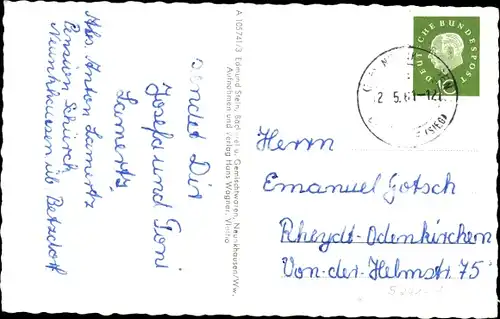 Abs. Anton Lamertz
Pension Schürch
Neunkhausen üb Betzdorf
sendet Dir
Josefa und Toni
Lamertz
A 105741/3 Edmund Stein, Bäckerei u. Gemischtwaren, Neunkhausen/Ww.
Aufnahmen und Verlag Hans Wagner, Vlotho
DEUTSCHE BUNDESPOST
2.5.61-12
(SIEG)
Herrn
Emanuel Gotsch
Rheydt-Odenkirchen
Von-der-Helmstr. 75